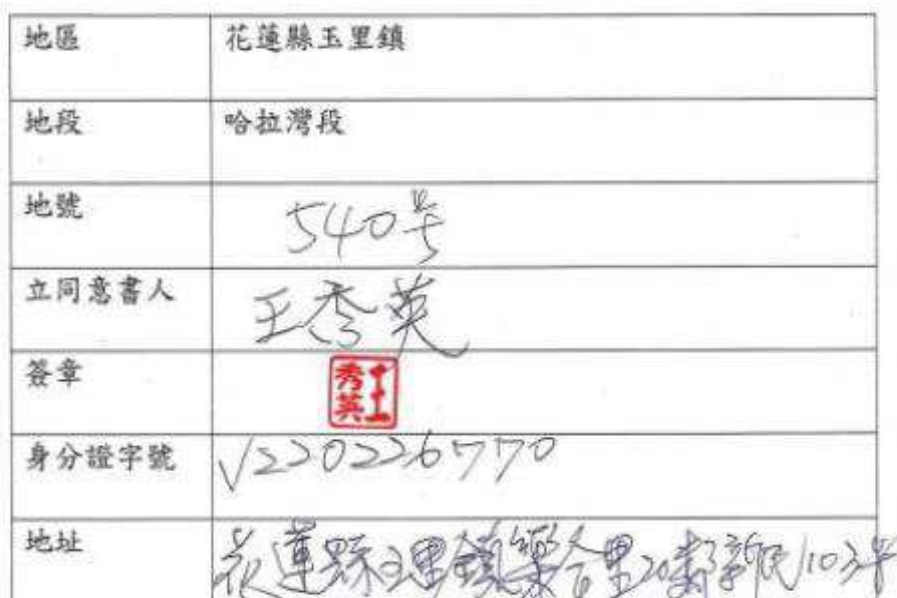 地區 花蓮縣玉里鎮
地段 哈拉灣段
地號 540号
立同意書人 王秀英
簽章 王秀英
身分證字號 V220226770
地址 花蓮縣玉里鎮樂合里20鄰新民103号